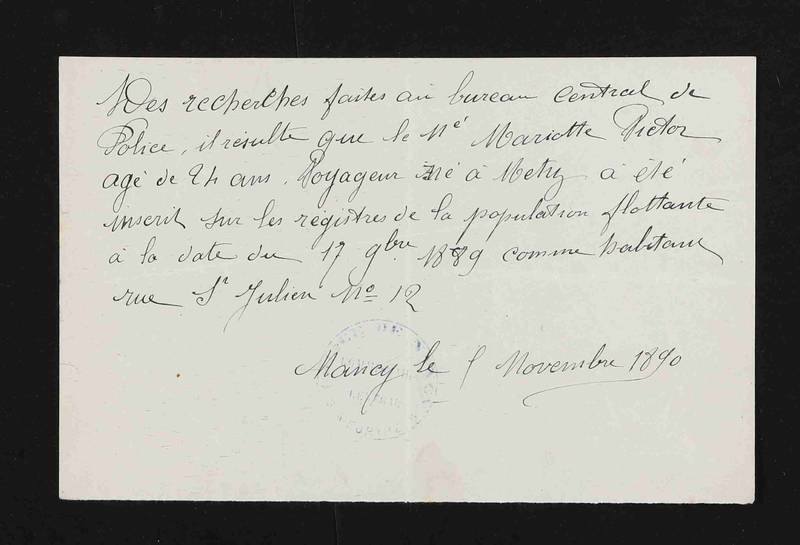 Des recherches faites au bureau central de
Police, il résulte que le Né Mariotte Victor
agé de 24 ans. Voyageur né à Metz à été
inscrit sur les registres de la population flottante
à la date du 17 9bre 1889 comme habitant
rue St Julien No 12
Nancy le 5 Novembre 1890